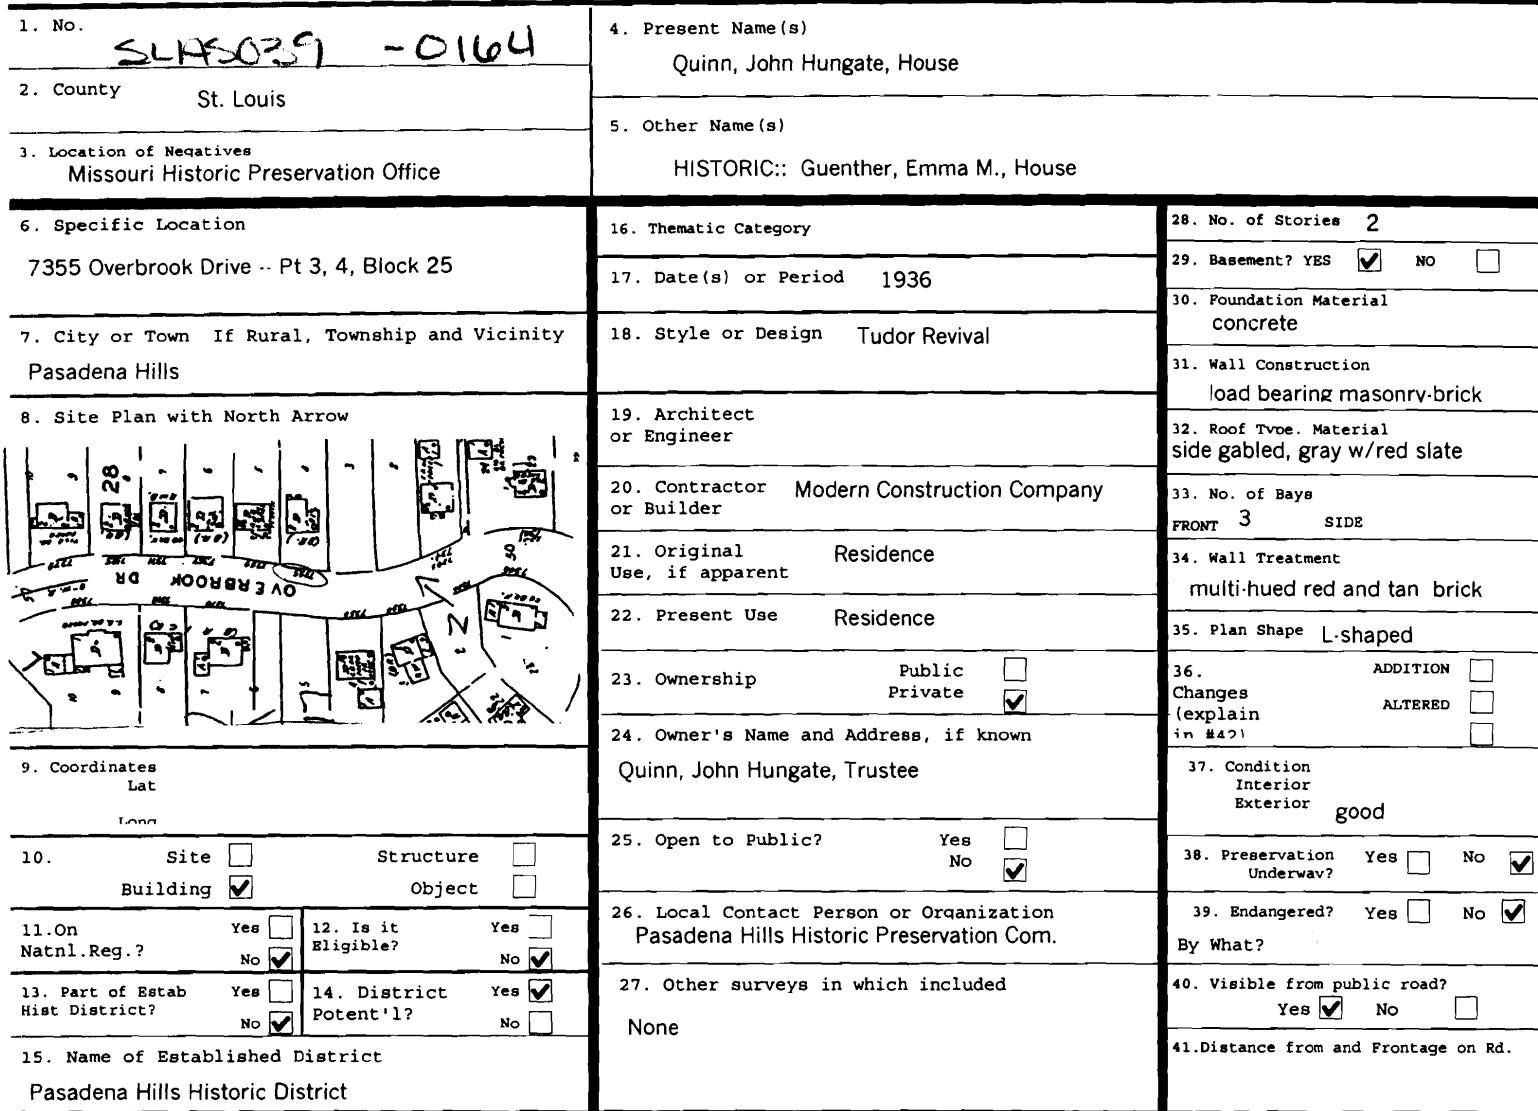 1. No.
SLAS039 -0164
2. County St. Louis
3. Location of Negatives
Missouri Historic Preservation Office
4. Present Name(s)
Quinn, John Hungate, House
5. Other Name(s)
HISTORIC:: Guenther, Emma M., House
6. Specific Location
7355 Overbrook Drive -- Pt 3, 4, Block 25
7. City or Town If Rural, Township and Vicinity
Pasadena Hills
8. Site Plan with North Arrow
28
OVERBROOK DR
50
9. Coordinates
Lat
Long
10. Site Structure
Building ✔ Object
11.On Yes
Natnl.Reg.? No ✔
12. Is it Yes
Eligible? No ✔
13. Part of Estab Yes
Hist District? No ✔
14. District Yes ✔
Potent'l? No
15. Name of Established District
Pasadena Hills Historic District
16. Thematic Category
17. Date(s) or Period 1936
18. Style or Design Tudor Revival
19. Architect
or Engineer
20. Contractor Modern Construction Company
or Builder
21. Original Residence
Use, if apparent
22. Present Use Residence
23. Ownership Public
Private ✔
24. Owner's Name and Address, if known
Quinn, John Hungate, Trustee
25. Open to Public? Yes
No ✔
26. Local Contact Person or Organization
Pasadena Hills Historic Preservation Com.
27. Other surveys in which included
None
28. No. of Stories 2
29. Basement? YES ✔ NO
30. Foundation Material
concrete
31. Wall Construction
load bearing masonry-brick
32. Roof Type. Material
side gabled, gray w/red slate
33. No. of Bays
FRONT 3 SIDE
34. Wall Treatment
multi-hued red and tan brick
35. Plan Shape L-shaped
36. ADDITION
Changes
(explain ALTERED
in #42)
37. Condition
Interior
Exterior good
38. Preservation Yes No ✔
Underway?
39. Endangered? Yes No ✔
By What?
40. Visible from public road?
Yes ✔ No
41.Distance from and Frontage on Rd.